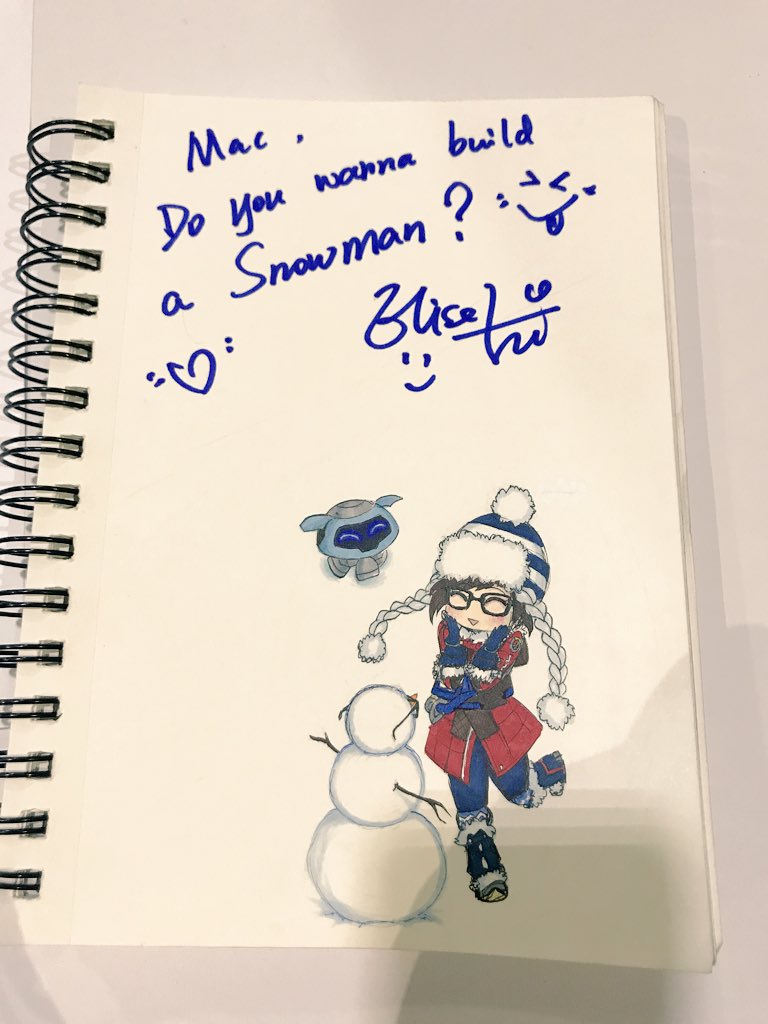 Mac,
Do you wanna build
a Snowman?
Elise